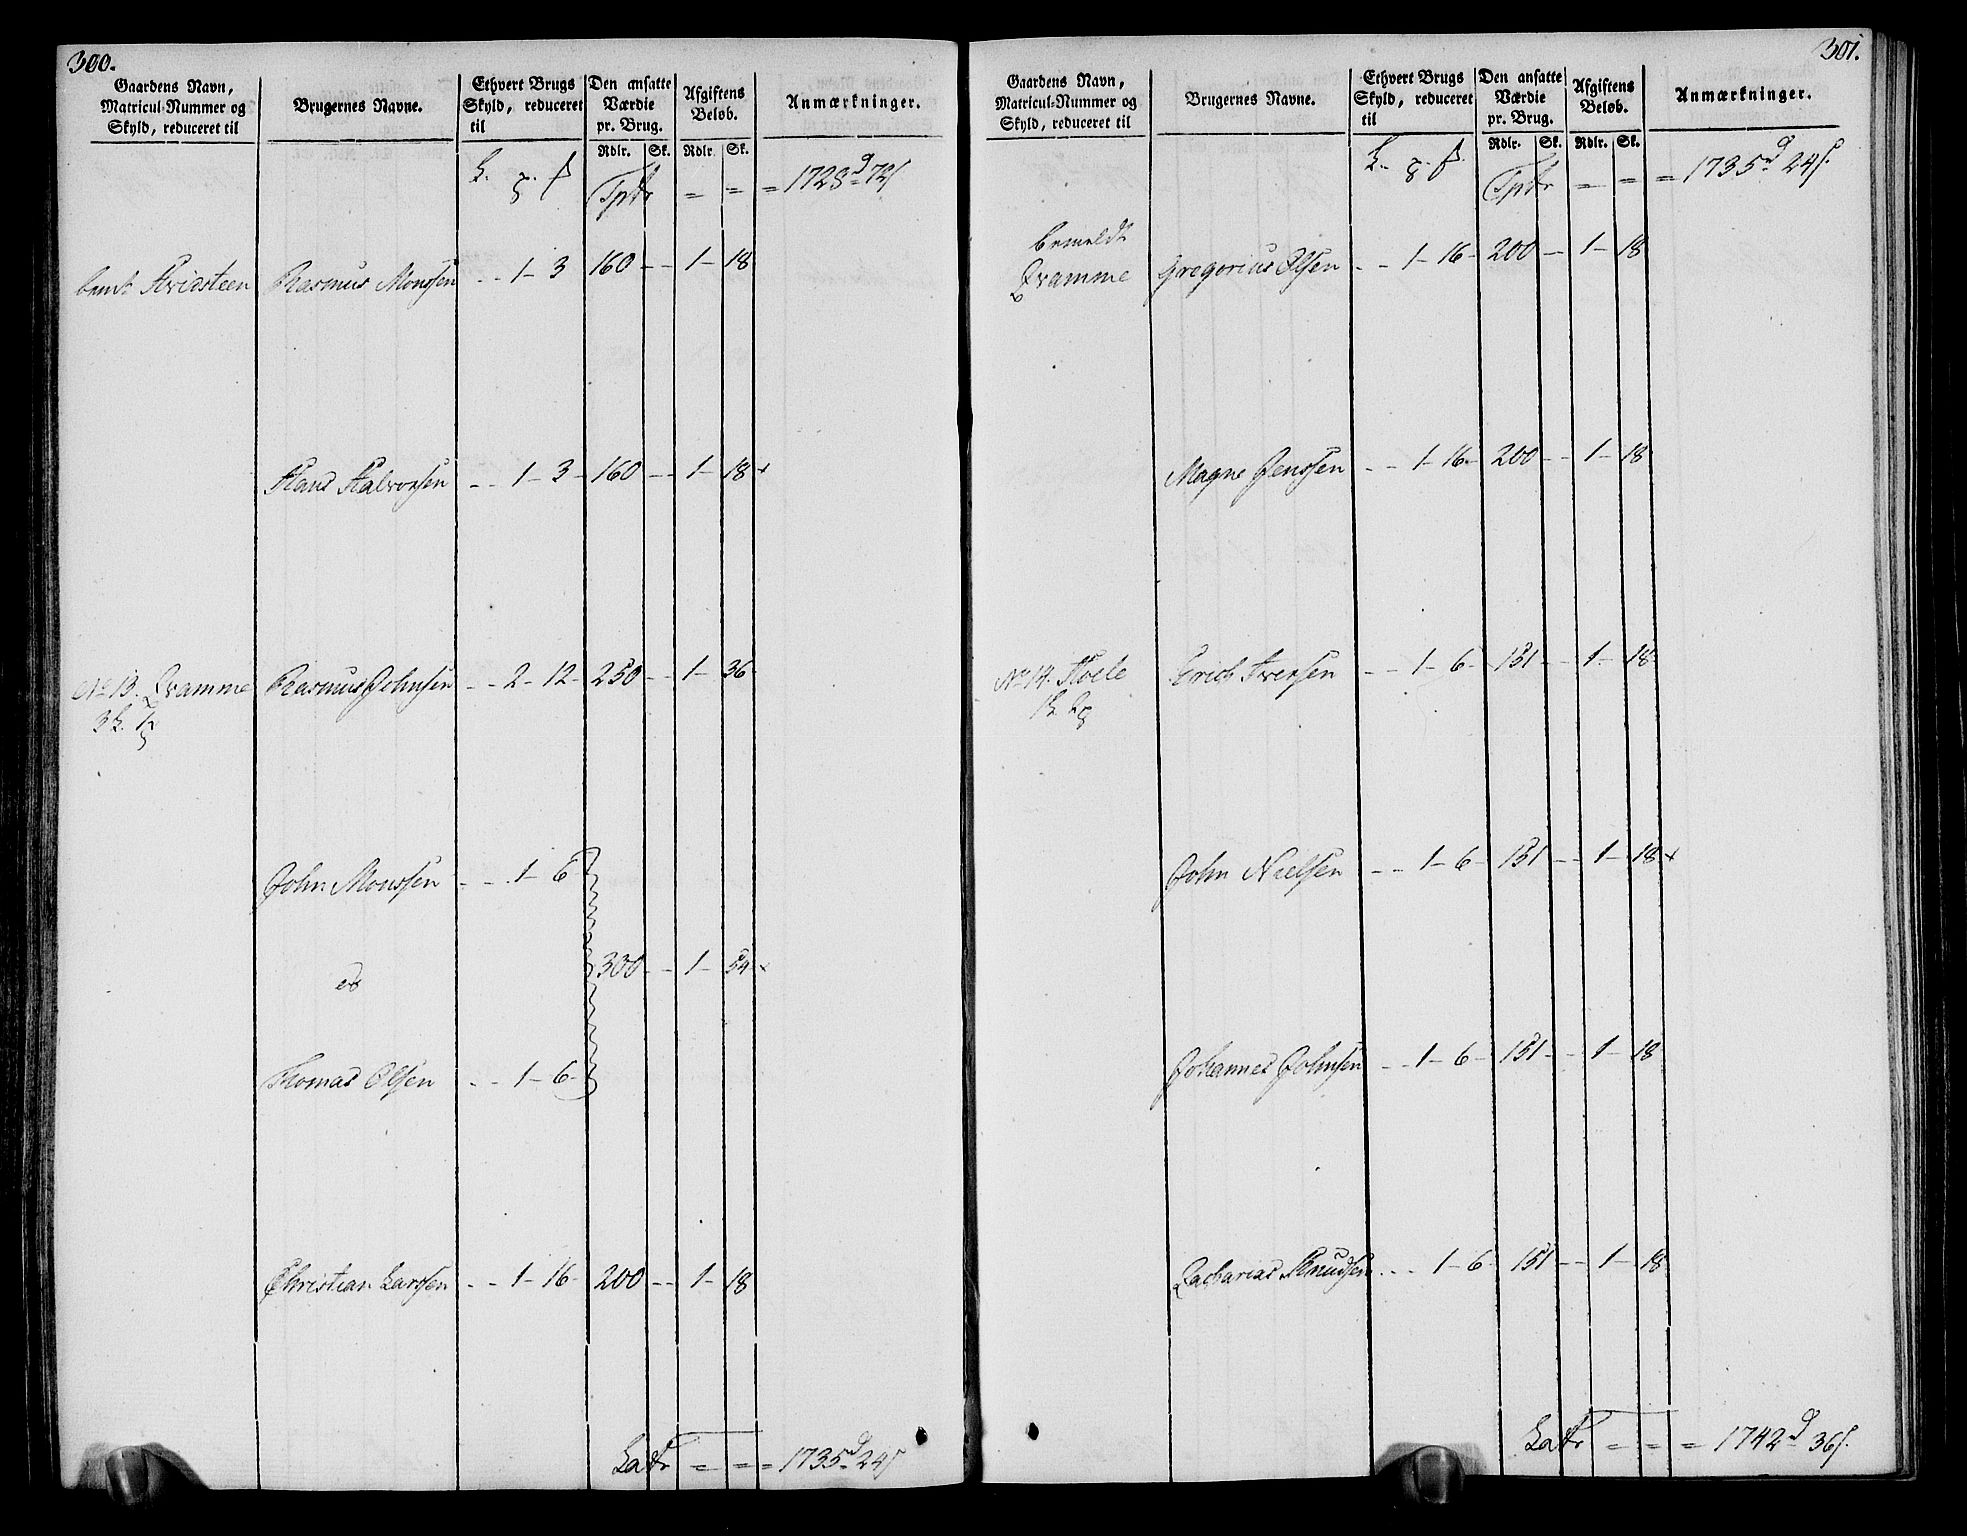 300.
Gaardens Navn, Matricul-Nummer og Skyld, reduceret til
Brugernes Navne.
Ethvert Brugs Skyld, reduceret til
Den ansatte Værdie pr. Brug.
Afgiftens Beløb.
Anmærkninger.
Rdlr. Sk. Rdlr. Sk.
Tptr = = = 1728d 72s
bemt Hvidsteen Rasmus Monssen - - 1 - 3 160 - - 1 - 18
Hans Halvorsen - - 1 - 3 - 160 - - 1 - 18 x
No 13. Qvamme Rasmus Johnsen - - 2 - 12 - 250 - - 1 - 36
John Monssen - - 1 - 6
og 300 - - 1 - 54 x
Thomas Olsen - - 1 - 6
Christian Larssen - - 1 - 16 - 200 - - 1 - 18
Latr = = = 1735d 24s
301.
Gaardens Navn, Matricul-Nummer og Skyld, reduceret til
Brugernes Navne.
Ethvert Brugs Skyld, reduceret til
Den ansatte Værdie pr. Brug.
Afgiftens Beløb.
Anmærkninger.
Rdlr. Sk. Rdlr. Sk.
Tptr = = = 1735d 24s.
bemeldt
Qvamme Gregorius Olsen - - 1 - 16 - 200 - 1 - 18
Magne Jenssen - - 1 - 16 - 200 - - 1 - 18
No 14. Hole Erich Iversen - - 1 - 6 - 151 - - 1 - 18
John Nielsen - - 1 - 6 - 151 - - 1 - 18 x
Johannes Johnsen - - 1 - 6 - 151 - - 1 - 18
Zacharias Knudsen - - 1 - 6 - 151 - - 1 - 18
Latr = = = 1742d 36s.